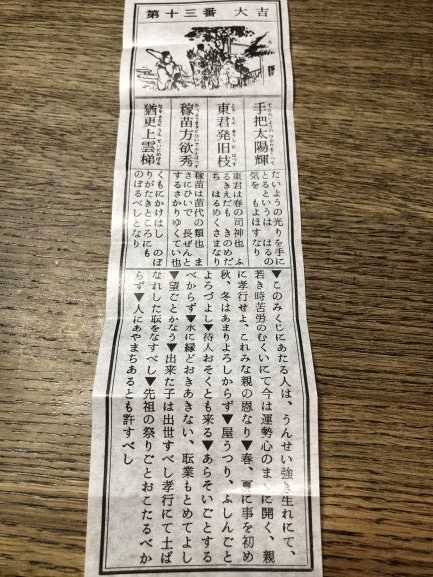 第十三番　大吉
手把太陽輝
東君発旧枝
稼苗方欲秀
猶更上雲梯
たいようの光りを手に
とるというは　はるの
気を　もよほすなり
東君は春の司神也　ふ
るきえだも　きのめだ
ち　はるめくさまなり
稼苗は苗代の類也　ま
さにひいで　長ぜんと
するさかりゆくてい也
くもにかけはし　のぼ
りがたきところにも
のぼるべしとなり
▼このみくじにあたる人は、うんせい強き生れにて、
若き時苦労のむくいにて今は運勢心のままに開く、親
に孝行せよ、これみな親の恩なり▼春、夏に事を初め
秋、冬はあまりよろしからず▼屋うつり、ふしんごと
よろづよし▼待人おそくとも来る▼あらそいごとする
べからず▼水に縁どおきあきない、耺業もとめてよし
▼望ごとかなう▼出来た子は出世すべし孝行にて土ば
なれした耺をなすべし▼先祖の祭りごとおこたるべか
らず▼人にあやまちあるとも許すべし